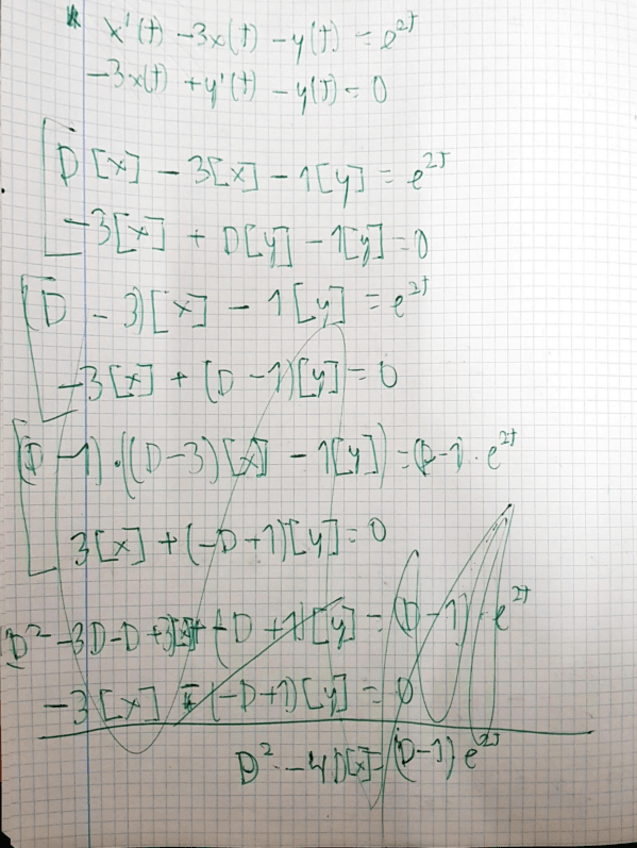 * x'(t) - 3x(t) - y(t) = e^{2t}
-3x(t) + y'(t) - y(t) = 0
D[x] - 3[x] - 1[y] = e^{2t}
-3[x] + D[y] - 1[y] = 0
(D - 3)[x] - 1[y] = e^{2t}
-3[x] + (D - 1)[y] = 0
(D - 1)·((D - 3)[x] - 1[y]) = (D - 1)·e^{2t}
3[x] + (-D + 1)[y] = 0
D² - 3D - D + 3[x] + (-D + 1)[y] = (D - 1)·e^{2t}
-3[x] ± (-D + 1)[y] = 0
D² - 4D[x] = (D - 1) e^{2t}